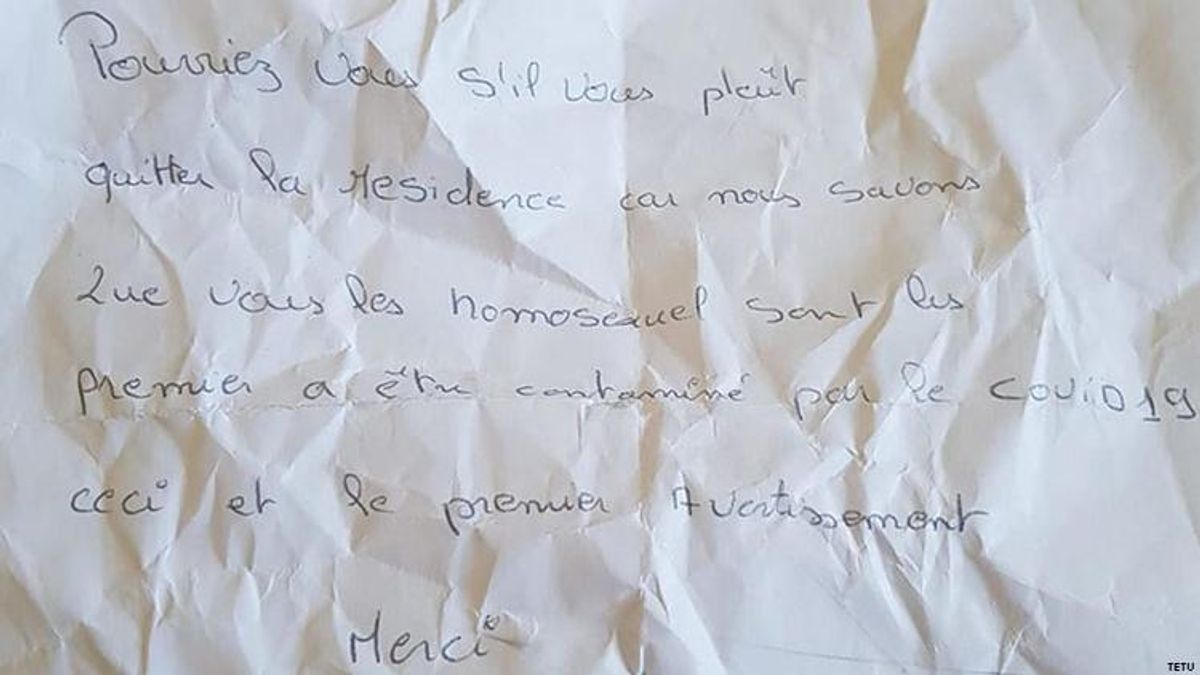 Pourriez vous s'il vous plaît
quitter la residence car nous savons
Que vous les homosexuel sont les
premier a être contaminé par le COViD19
ceci et le premier Avertissement
Merci
TETU